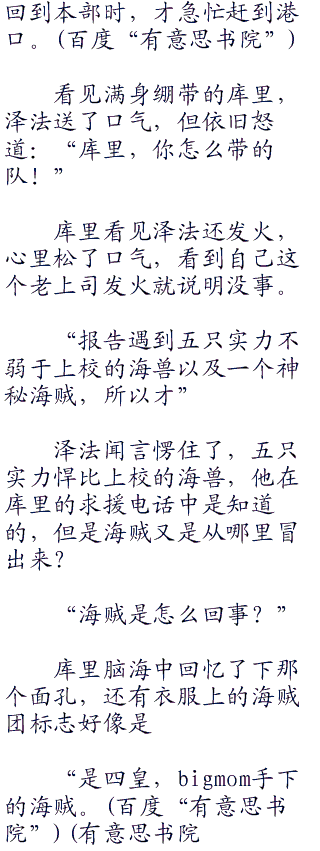 回到本部时，才急忙赶到港
口。(百度“有意思书院”)
看见满身绷带的库里，
泽法送了口气，但依旧怒
道：“库里，你怎么带的
队！”
库里看见泽法还发火，
心里松了口气，看到自己这
个老上司发火就说明没事。
“报告遇到五只实力不
弱于上校的海兽以及一个神
秘海贼，所以才”
泽法闻言愣住了，五只
实力悍比上校的海兽，他在
库里的求援电话中是知道
的，但是海贼又是从哪里冒
出来？
“海贼是怎么回事？”
库里脑海中回忆了下那
个面孔，还有衣服上的海贼
团标志好像是
“是四皇，bigmom手下
的海贼。(百度“有意思书
院”)(有意思书院